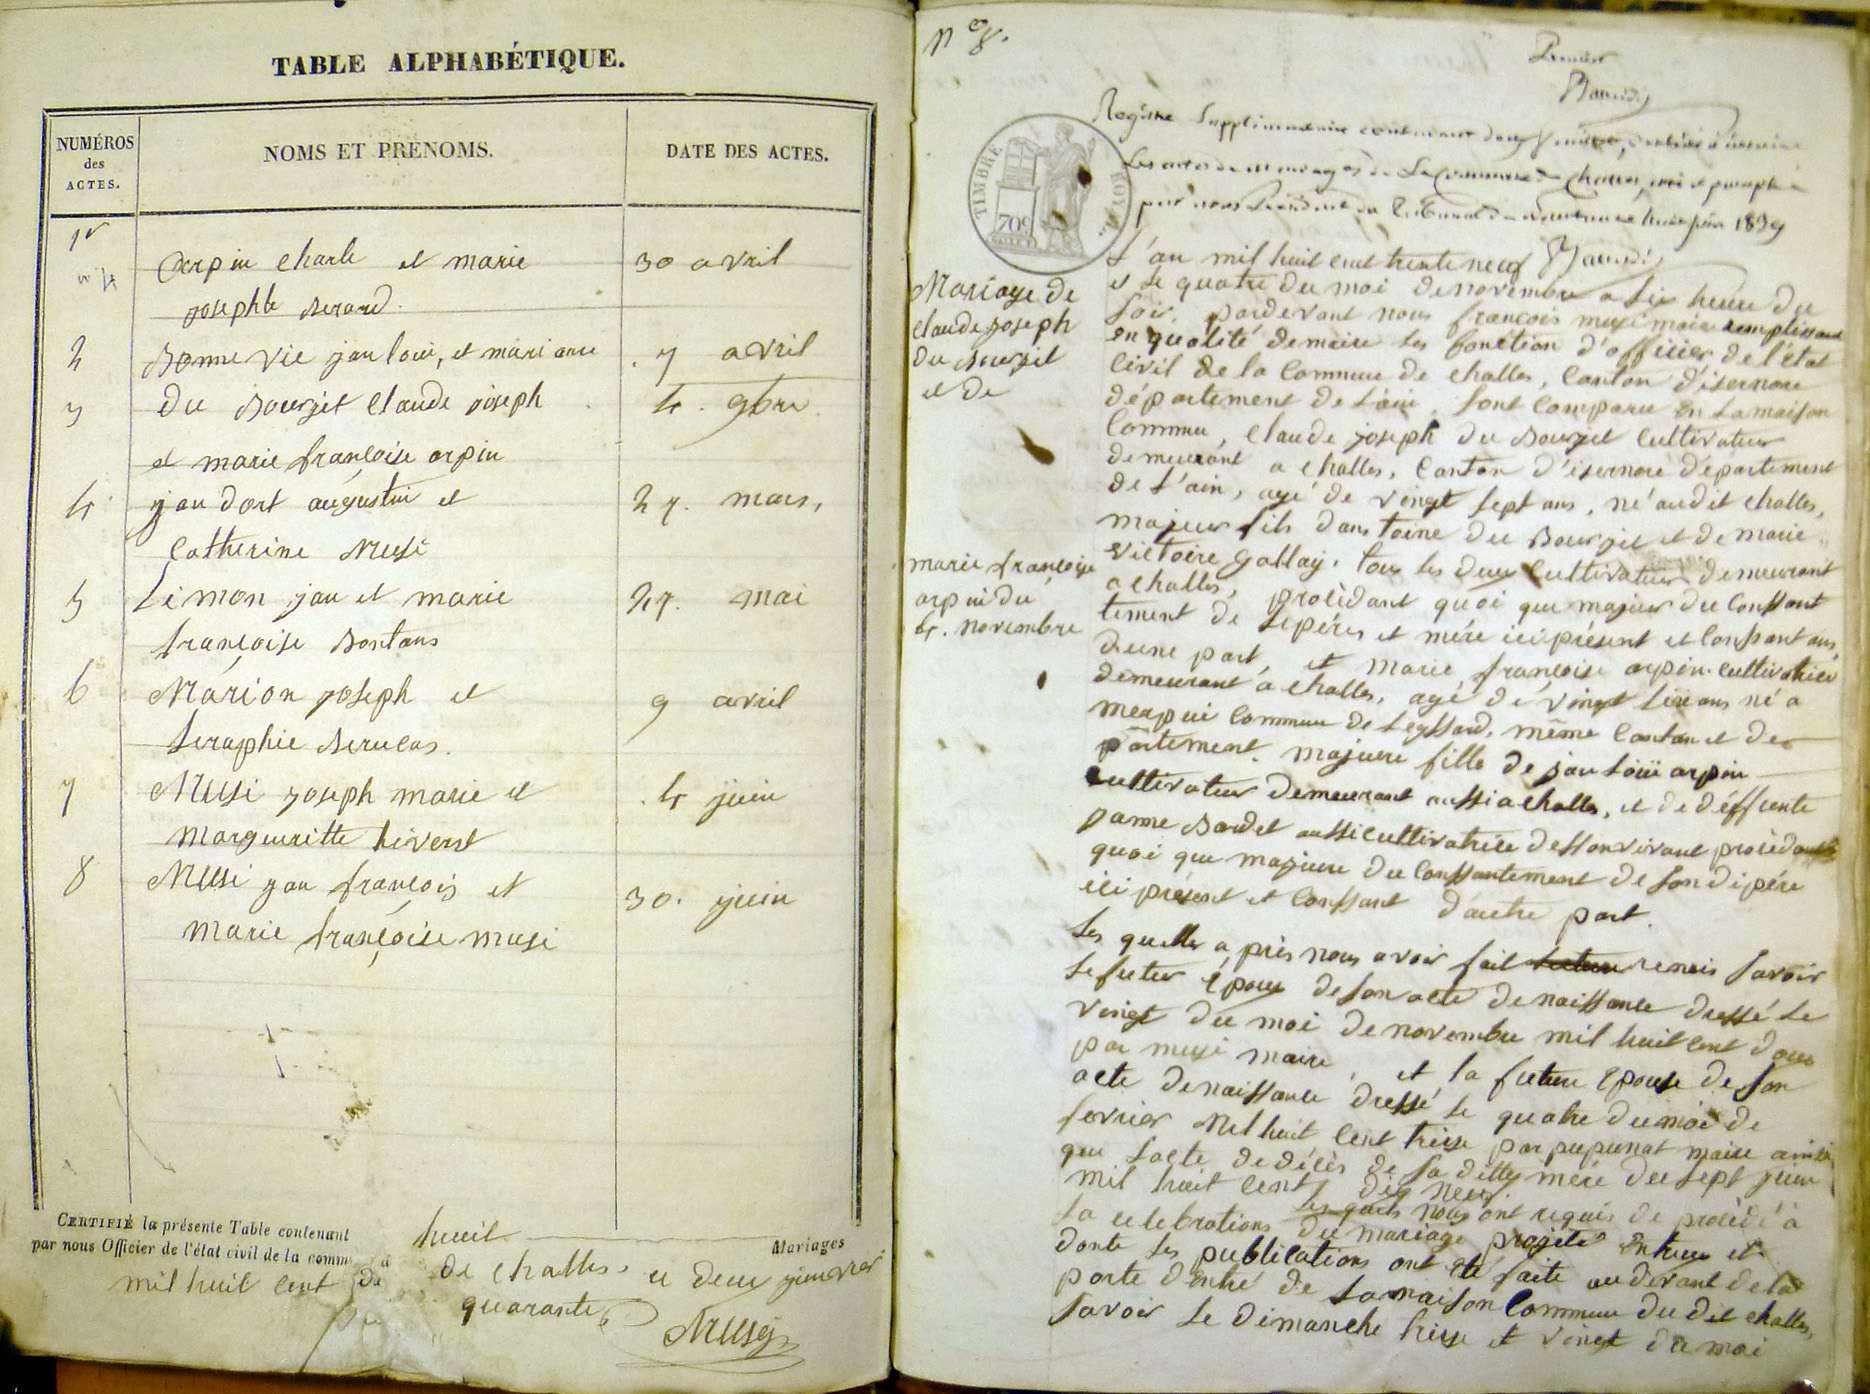 TABLE ALPHABÉTIQUE.
NUMÉROS
des
ACTES.
NOMS ET PRÉNOMS.
DATE DES ACTES.
1er
arpin charle et marie
30 avril
josephte Berand.
2
Bonne vie jan loui, et mari anne
7 avril
3
Du Bourjet Claude joseph
4. 9bre
et marie françoise arpin
4
jandort augustin et
27. mars,
Catherine Musi
5
Limon jan et marie
27. mai
françoise Bontans
6
Marion joseph et
9 avril
Seraphie
7
Musi joseph marie et
4 juin
Margueritte
8
Musi jan françois et
30. juin
Marie françoise musi
CERTIFIÉ la présente Table contenant
huit
Mariages
par nous Officier de l'état civil de la comm
de challes,
deux janvier
mil huit cent
quarante
Musy
N° 8.
Premier
Registre Supplémentaire contenant deux destiné à
Les actes de mariages de La Commune de Challes, coté et paraphé
par nous Président du Tribunal de huit juin 1839
TIMBRE ROYAL
70c
L'an mil huit cent trente neuf
et le quatre du moi de novembre a six heure du
soir, pardevant nous françois musi maire remplissant
en qualité de maire les fonction d'officier de l'état
Civil de la Commune de challes, Canton d'isernore
département de l'ain, sont comparu en la maison
Commune, Claude joseph du Bourjet Cultivateur
demeurant a challes, Canton d'isernore département
de l'ain, agé de vingt sept ans, né audit challes,
majeur fils dantoine du Bourjet et de marie
victoire gallay, tous les deux Cultivateur demeurant
a challes, procèdant quoi que majeur du Conssant
tement de se père et mère ici présent et Conssantans,
d'une part, et Marie françoise arpin cultivatrice
demeurant a challes, agé de vingt ans né a
merpui Commune de Leyssard, même Canton et de
partement, majeure fille de jan loui arpin
cultivateur demeurant aussi a challes, et de déffunte
janne aussi cultivatrice dessonvivant procèdant
quoi que majeure du Conssantement de sondipére
ici présent et Conssant d'autre part.
Les quelles après nous avoir fait remis savoir
le futur époux de son acte de naissance dressé le
vingt du moi de novembre mil huit cent douze
par musi maire, et la future épouse de son
acte de naissance dressé le quatre du moi de
fevrier Mil huit Cent treize par pupunat maire ainsi
que l'acte de décès de sa ditte mère du sept juin
mil huit cent dix neuf.
les quels nous ont requis de procédé à
la celebrations du mariage projeté entreux et
donte les publications ont été faite audevant de la
porte d'entré de la maison Commune du dit challes,
savoir le dimanche treize et vingt du moi
Mariage de
Claude joseph
Du Bourjet
et de
marie françoise
arpin du
4. novembre